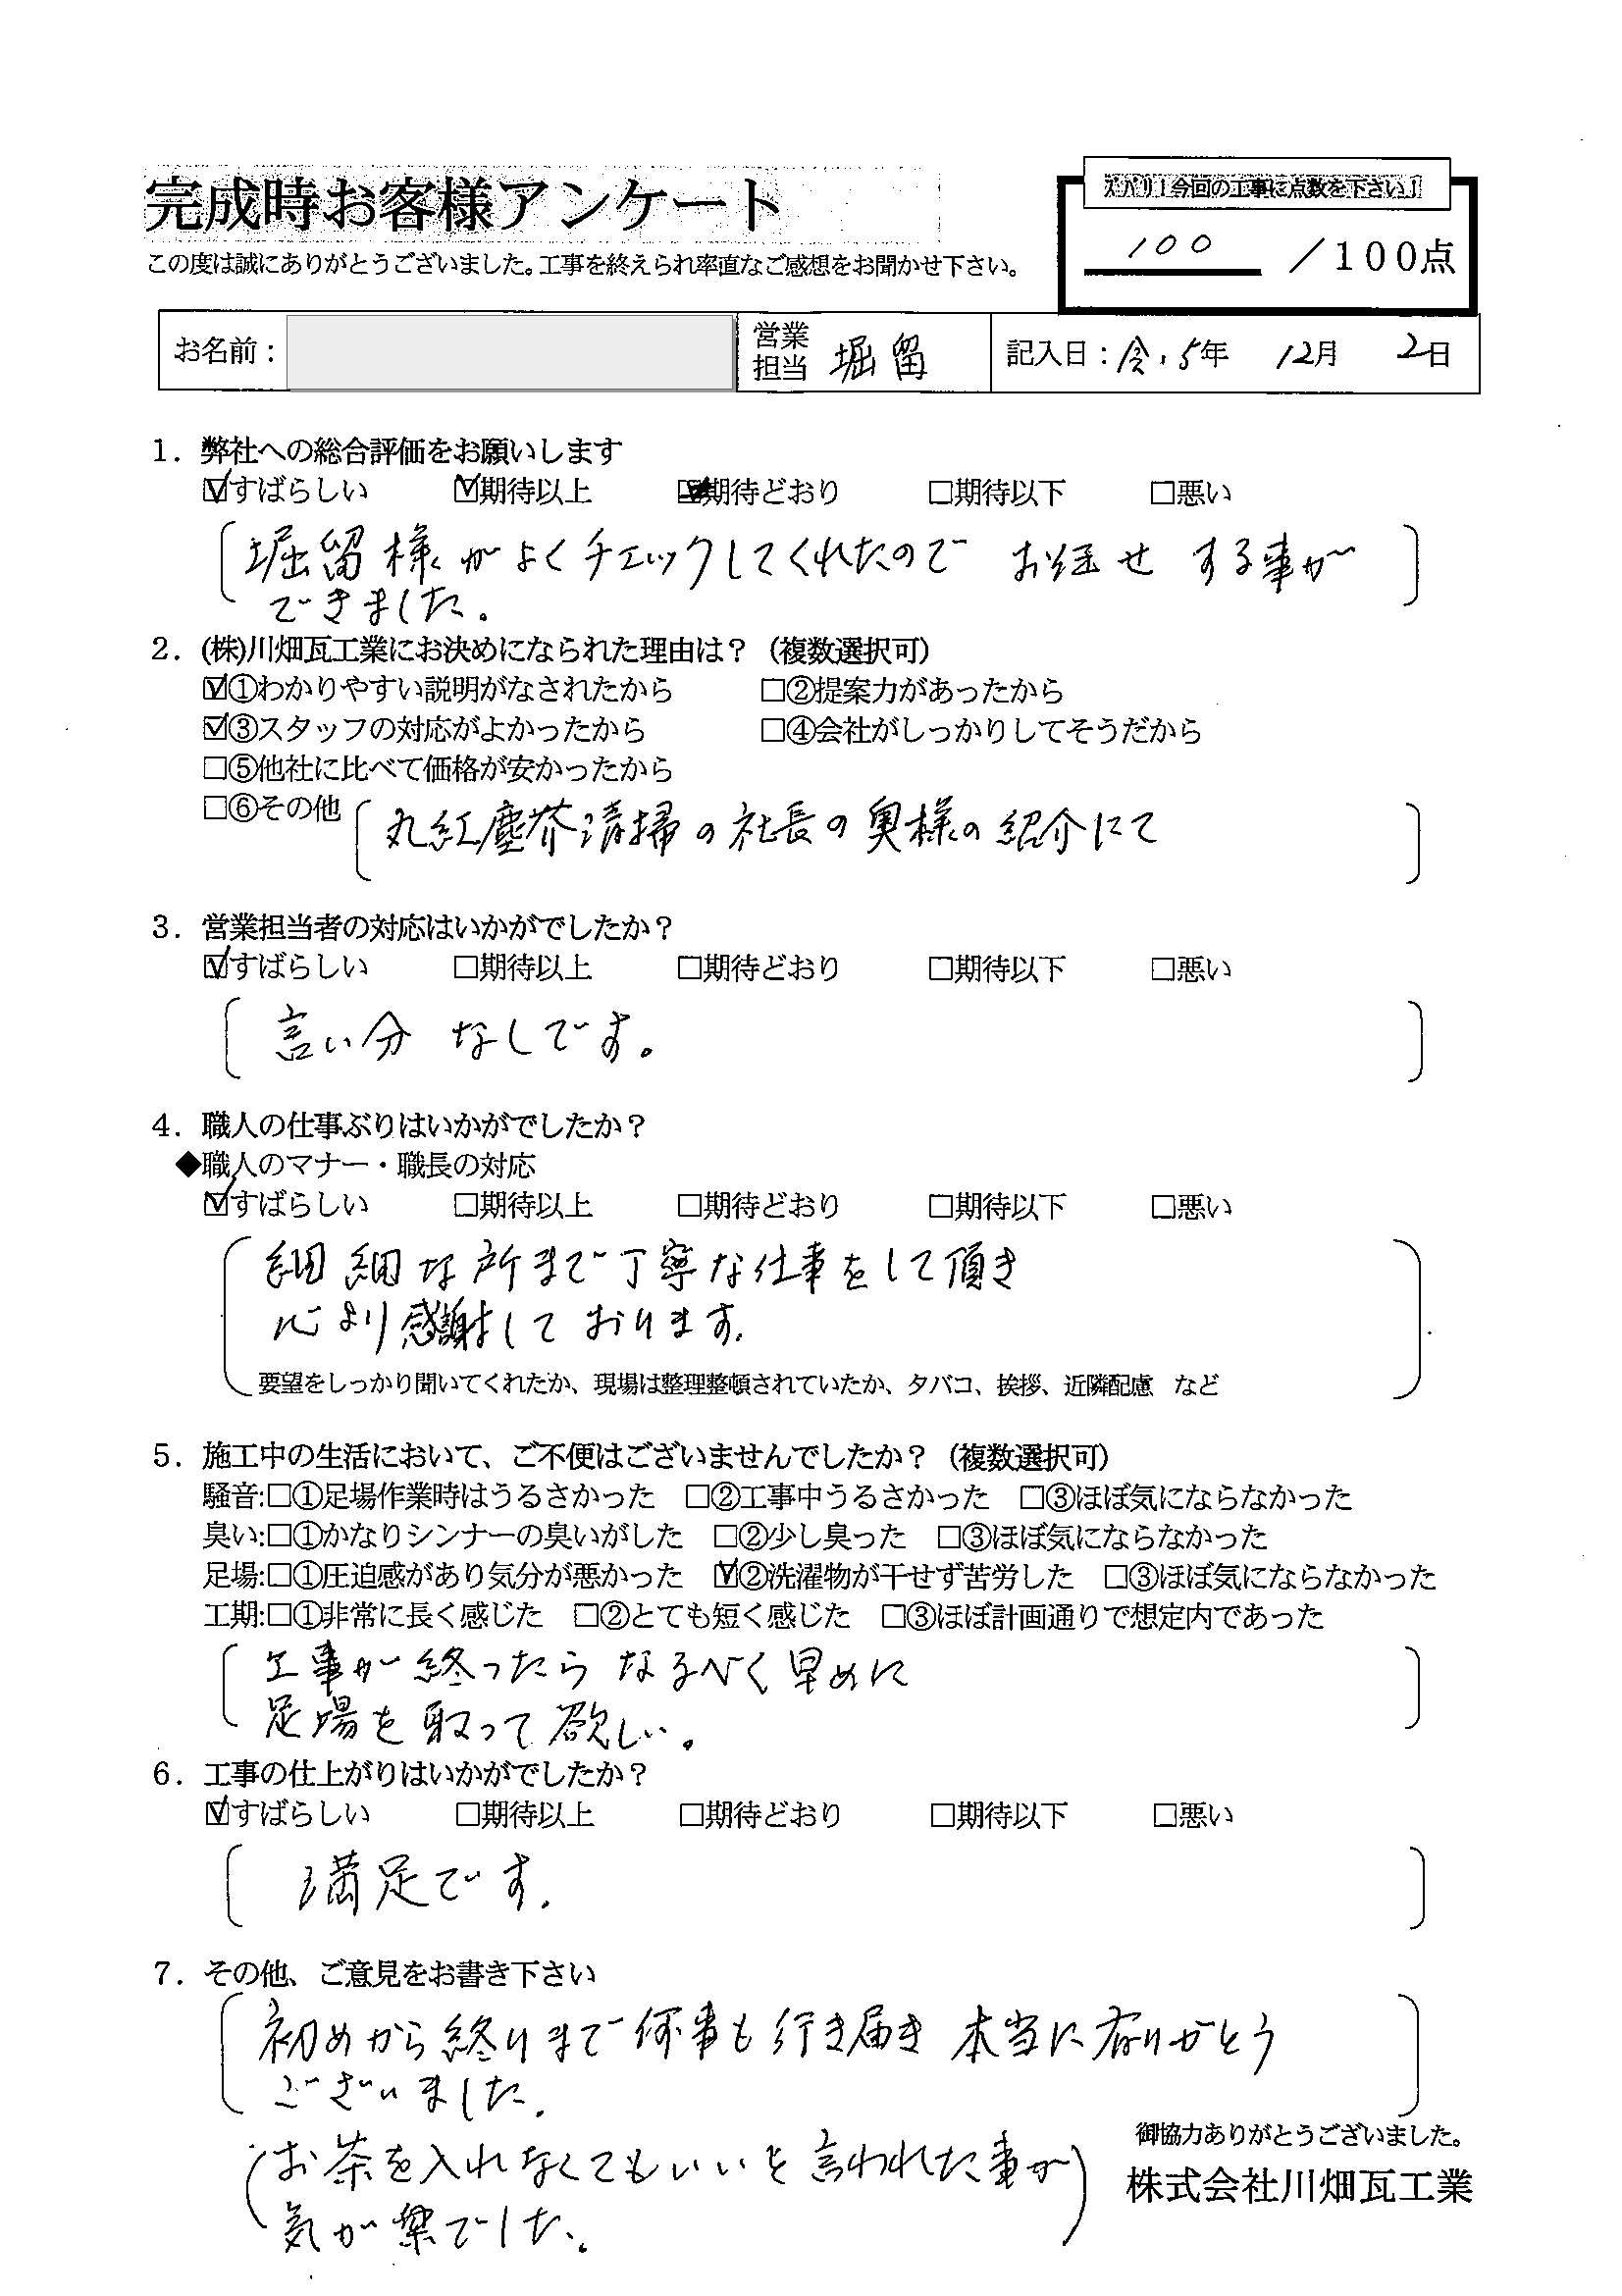 完成時お客様アンケート
この度は誠にありがとうございました。工事を終えられ率直なご感想をお聞かせ下さい。
ズバリ！今回の工事に点数を下さい！
100 ／100点
お名前： 営業担当 堀留 記入日：令,5年 12月 2日
1．弊社への総合評価をお願いします
☑すばらしい ☑期待以上 ☑期待どおり □期待以下 □悪い
堀留様がよくチェックしてくれたので お任せ する事が
できました。
2．(株)川畑瓦工業にお決めになられた理由は？（複数選択可）
☑①わかりやすい説明がなされたから □②提案力があったから
☑③スタッフの対応がよかったから □④会社がしっかりしてそうだから
□⑤他社に比べて価格が安かったから
□⑥その他 丸紅塵芥清掃の社長の奥様の紹介にて
3．営業担当者の対応はいかがでしたか？
☑すばらしい □期待以上 □期待どおり □期待以下 □悪い
言い分 なしです。
4．職人の仕事ぶりはいかがでしたか？
◆職人のマナー・職長の対応
☑すばらしい □期待以上 □期待どおり □期待以下 □悪い
細細な所まで丁寧な仕事をして頂き
心より感謝しております.
要望をしっかり聞いてくれたか、現場は整理整頓されていたか、タバコ、挨拶、近隣配慮 など
5．施工中の生活において、ご不便はございませんでしたか？（複数選択可）
騒音:□①足場作業時はうるさかった □②工事中うるさかった □③ほぼ気にならなかった
臭い:□①かなりシンナーの臭いがした □②少し臭った □③ほぼ気にならなかった
足場:□①圧迫感があり気分が悪かった ☑②洗濯物が干せず苦労した □③ほぼ気にならなかった
工期:□①非常に長く感じた □②とても短く感じた □③ほぼ計画通りで想定内であった
工事が終ったら なるべく早めに
足場を取って欲しい。
6．工事の仕上がりはいかがでしたか？
☑すばらしい □期待以上 □期待どおり □期待以下 □悪い
満足です.
7．その他、ご意見をお書き下さい
初めから終りまで何事も行き届き 本当に有りがとう
ございました.
(お茶を入れなくてもいいと言われた事が
気が楽でした.)
御協力ありがとうございました。
株式会社川畑瓦工業